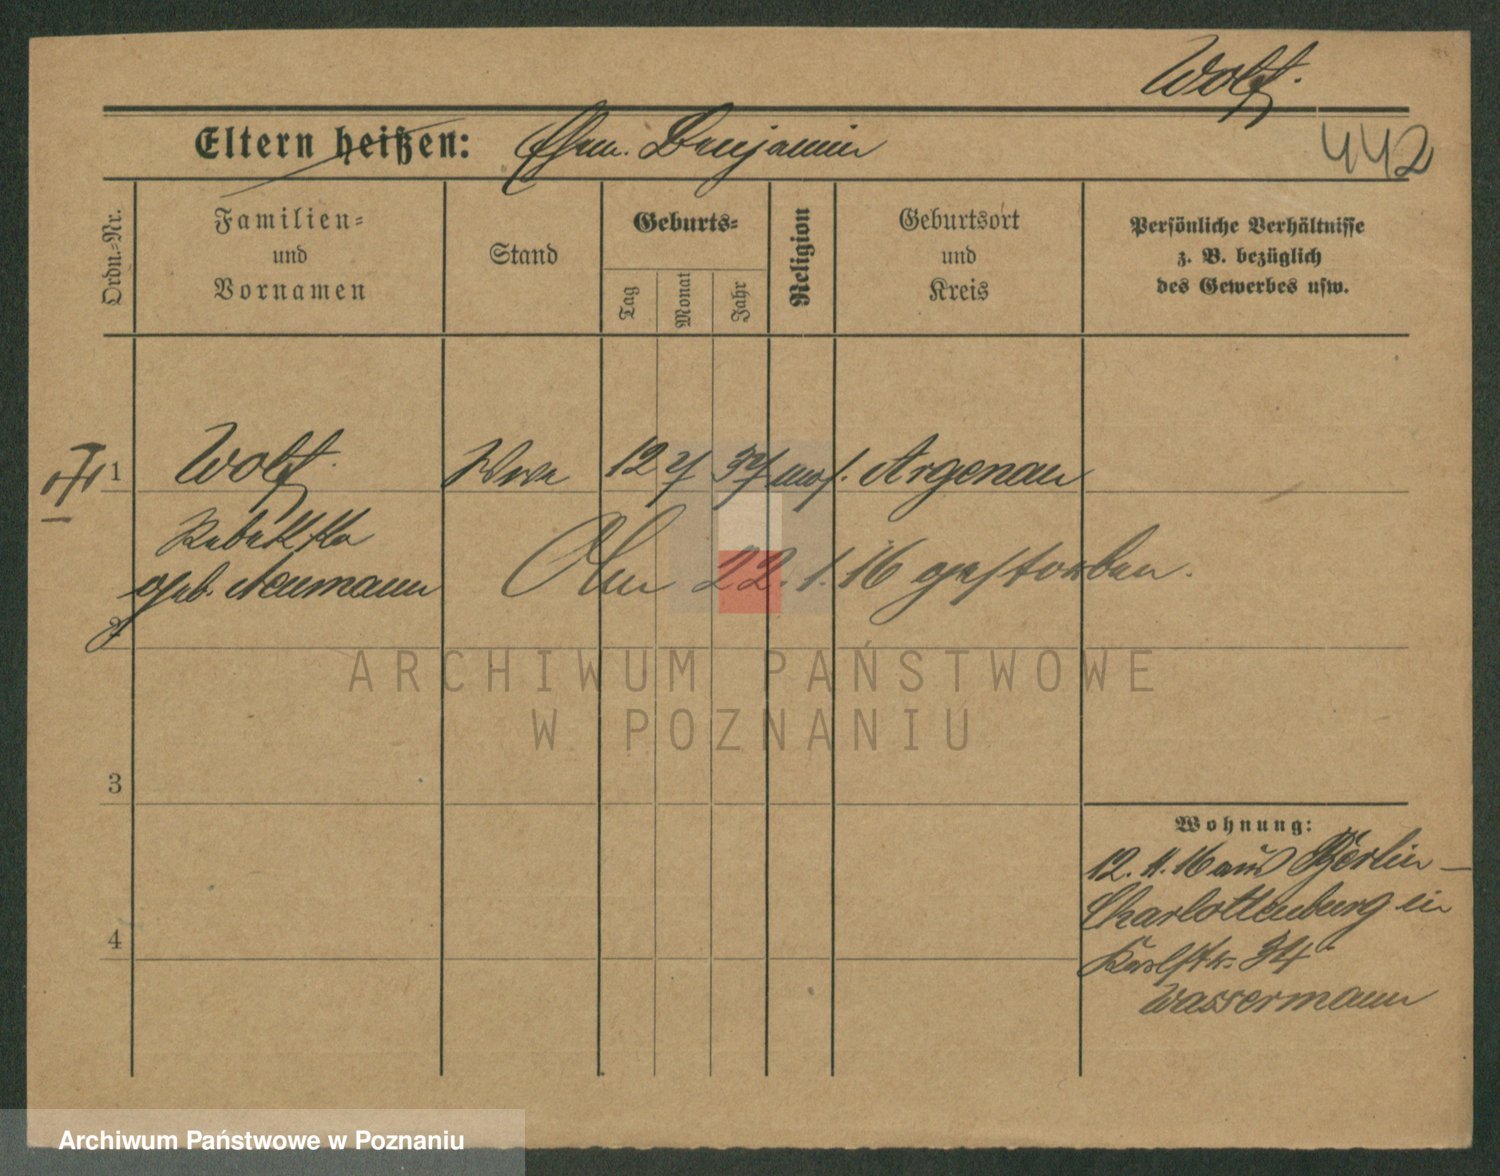 Wolf.
442
Eltern heißen: Ehem. Benjamin
Ordn.=Nr.
Familien=
und
Vornamen
Stand
Geburts=
Tag
Monat
Jahr
Religion
Geburtsort
und
Kreis
Persönliche Verhältnisse
z. B. bezüglich
des Gewerbes usw.
1 Wolf. Wwe 12 7 37 mos. Argenau
Rebekka
geb. Neumann
22. 1. 16 gestorben.
2
ARCHIWUM PAŃSTWOWE
W POZNANIU
3
Wohnung:
12. 11. 16 aus Berlin-
Charlottenburg in
4
34
Wassermann
Archiwum Państwowe w Poznaniu